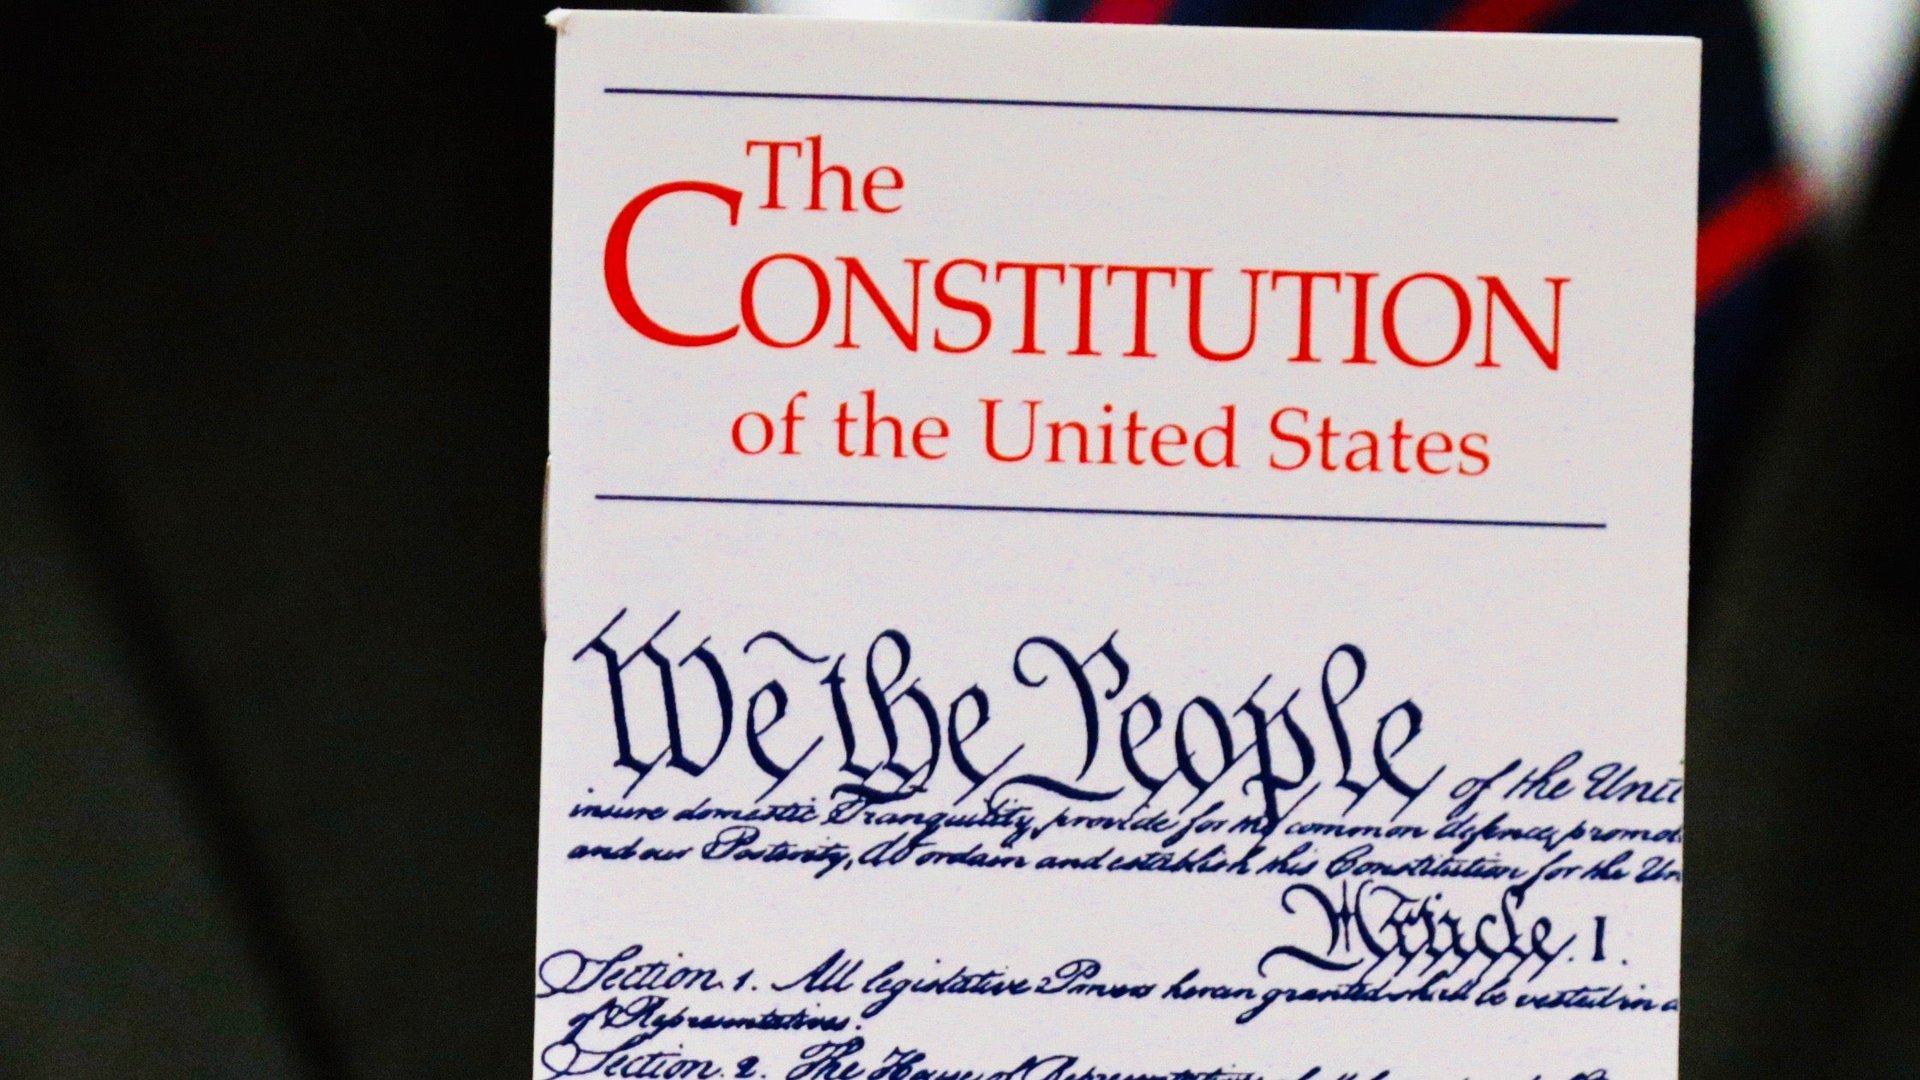 The
CONSTITUTION
of the United States
We the People of the Unit
insure domestic Tranquility, provide for the common defence, promot
and our Posterity, do ordain and establish this Constitution for the Un
Article. I.
Section. 1. All legislative Powers herein granted shall be vested in a
of Representatives.
Section. 2. The House of Representatives